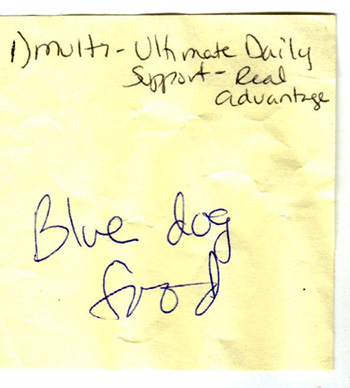 1) multi - Ultimate Daily
Support - Real
advantage
Blue dog
food